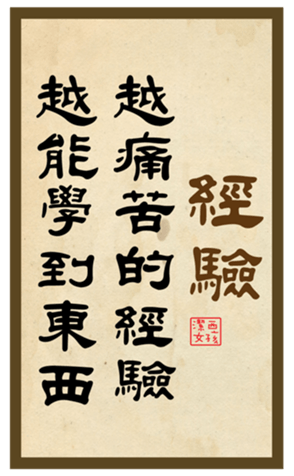 經驗
潔西
女孩
越痛苦的經驗
越能學到東西